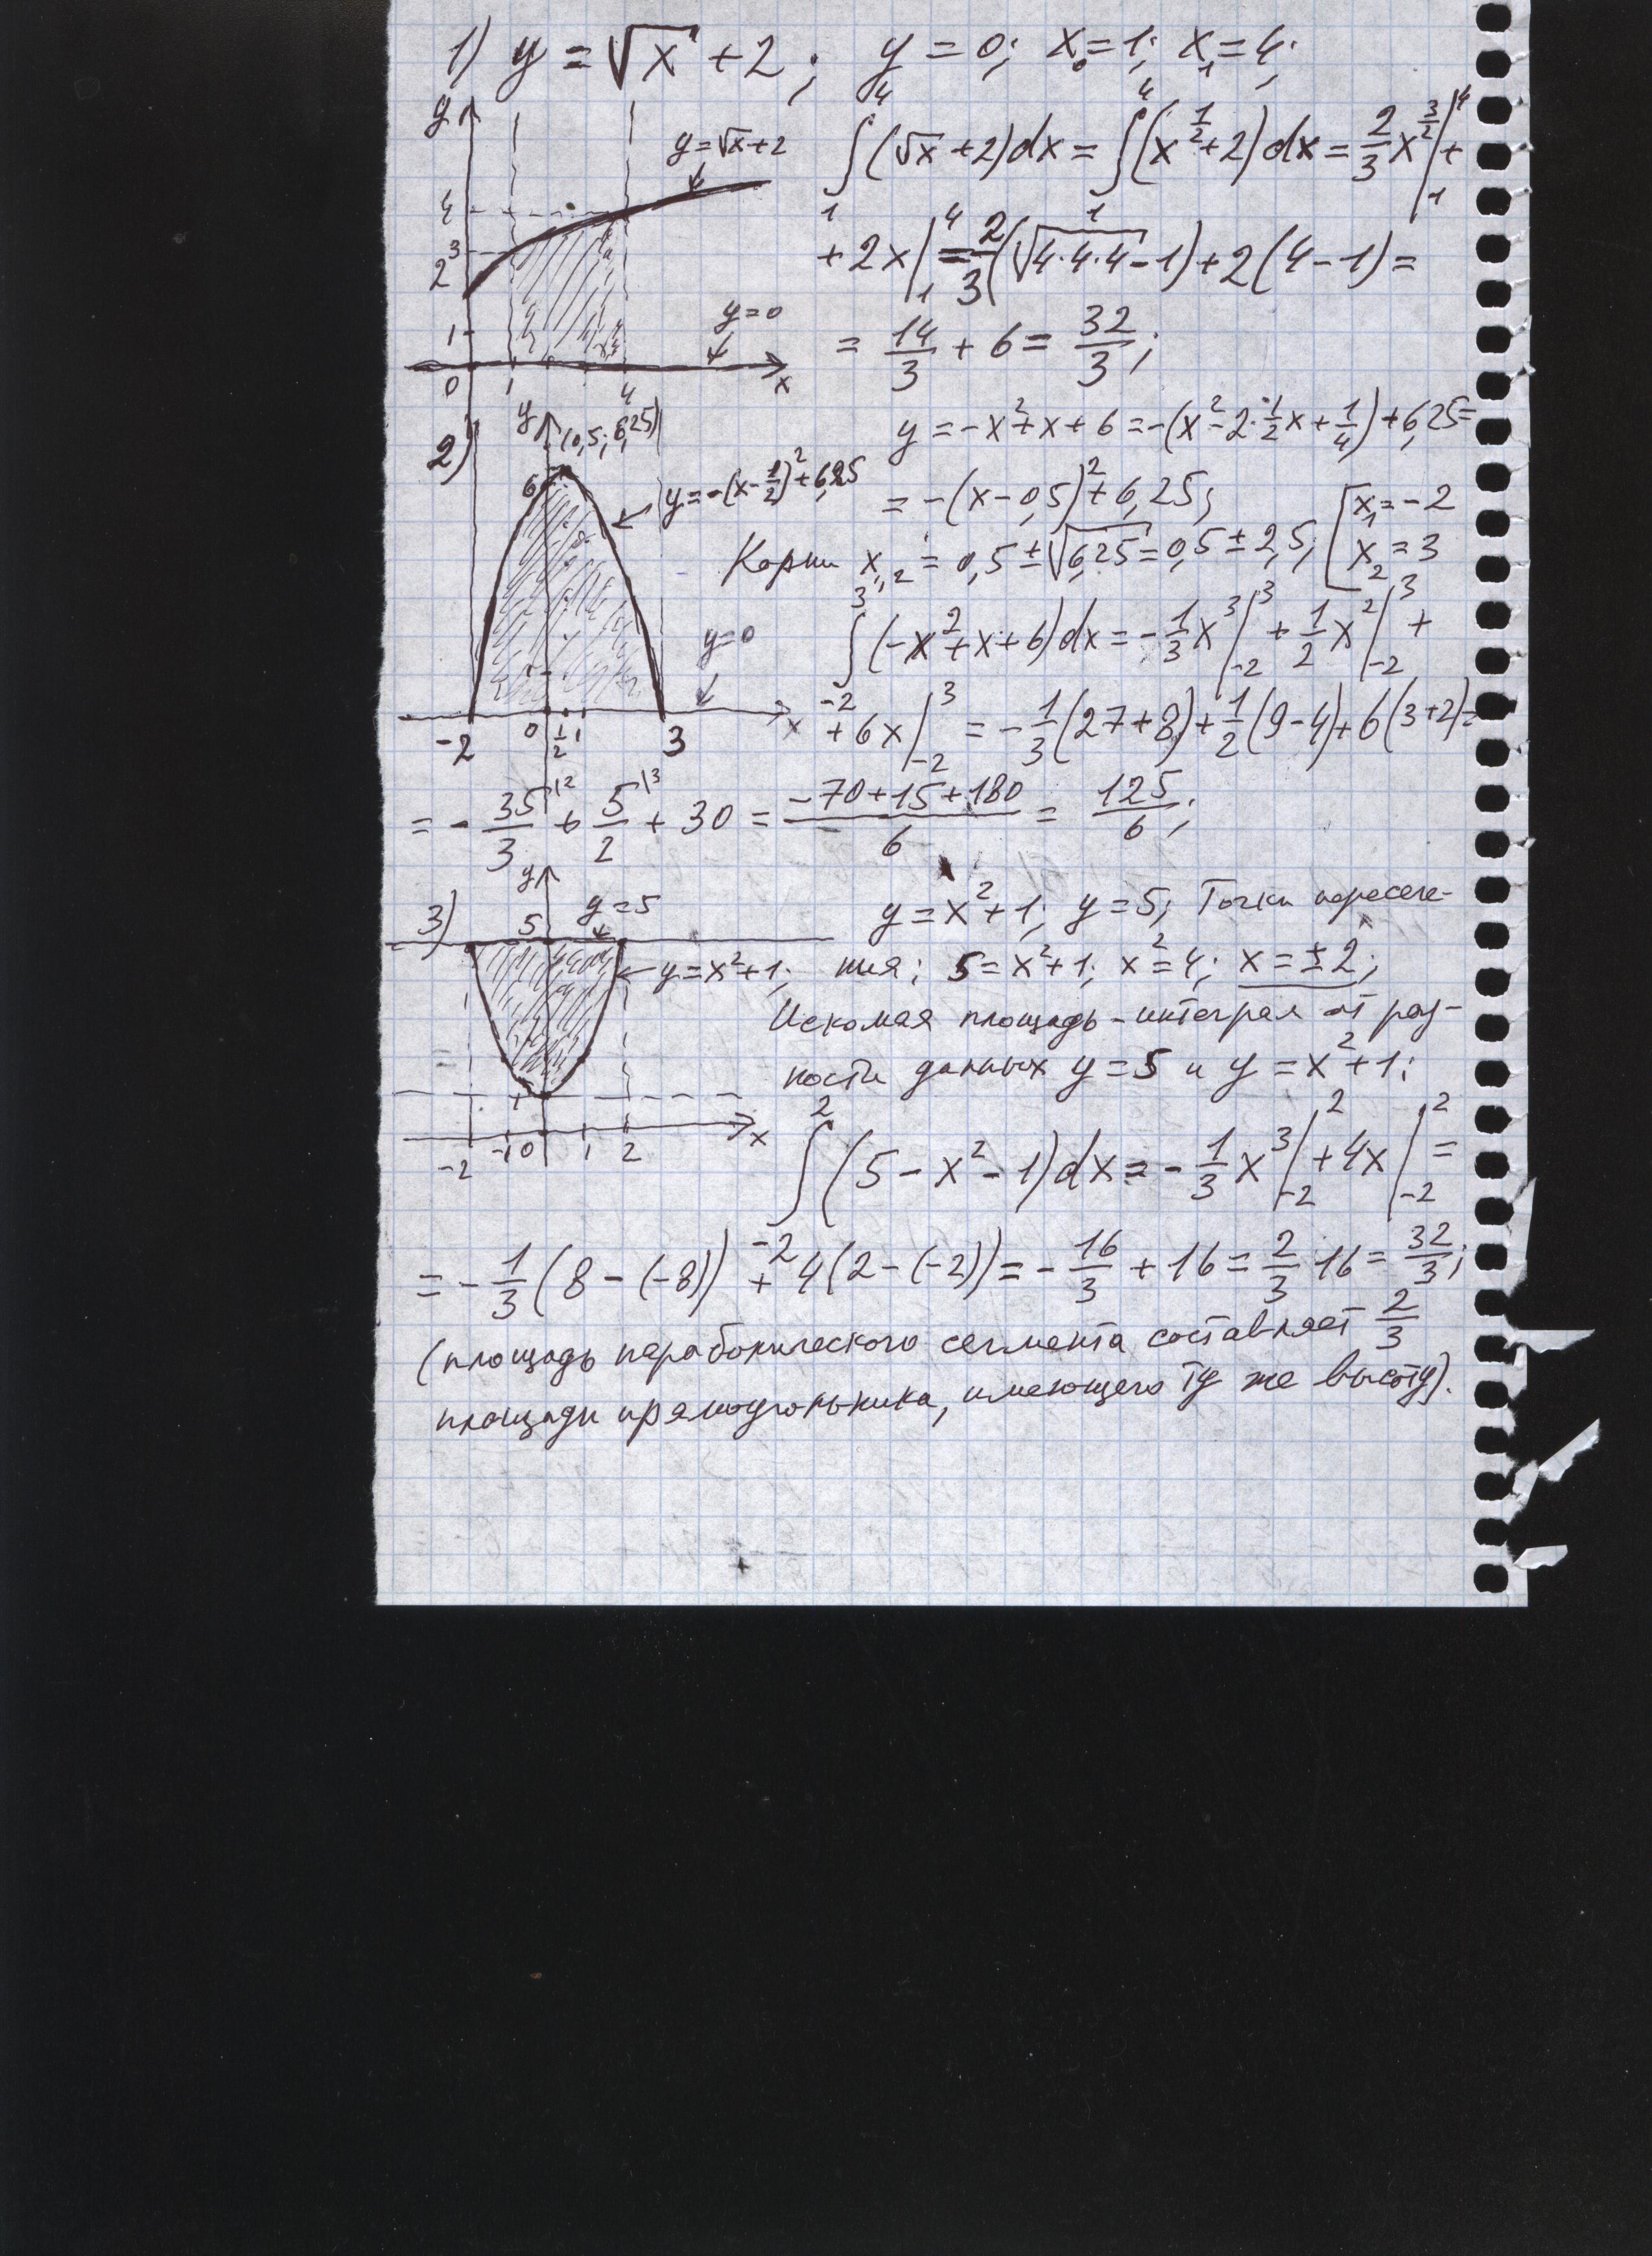 1) y = √x + 2; y = 0; x₀ = 1; x₁ = 4;
y
y=√x+2
4
3
2
1
0 1 4 x
y=0
∫₁⁴ (√x + 2) dx = ∫₁⁴ (x^(1/2) + 2) dx = 2/3 x^(3/2) |₁⁴ +
+ 2x |₁⁴ = 2/3 (√(4·4·4) − 1) + 2(4 − 1) =
= 14/3 + 6 = 32/3;
2)
y
(0,5; 6,25)
6
y = −(x − 1/2)² + 6,25
y=0
1
-2 0 1/2 1 3 x
y = −x² + x + 6 = −(x² − 2·1/2x + 1/4) + 6,25 =
= −(x − 0,5)² + 6,25;
Корни x₁,₂ = 0,5 ± √6,25 = 0,5 ± 2,5; [x₁ = −2
x₂ = 3
∫₋₂³ (−x² + x + 6) dx = −1/3 x³ |₋₂³ + 1/2 x² |₋₂³ +
+ 6x |₋₂³ = −1/3 (27 + 8) + 1/2 (9 − 4) + 6(3+2) =
= − 35/3 |2 + 5/2 |3 + 30 = (−70+15+180)/6 = 125/6;
3)
y
5
y=5
y=x²+1;
1
-2 -1 0 1 2 x
y = x² + 1; y = 5; Точки пересече-
ния: 5 = x² + 1; x² = 4; x = ±2;
Искомая площадь – интеграл от раз-
ности данных y = 5 и y = x² + 1:
∫₋₂² (5 − x² − 1) dx = −1/3 x³ |₋₂² + 4x |₋₂² =
= −1/3 (8 − (−8)) + 4(2 − (−2)) = −16/3 + 16 = 2/3 · 16 = 32/3;
(площадь параболического сегмента составляет 2/3
площади прямоугольника, имеющего ту же высоту).